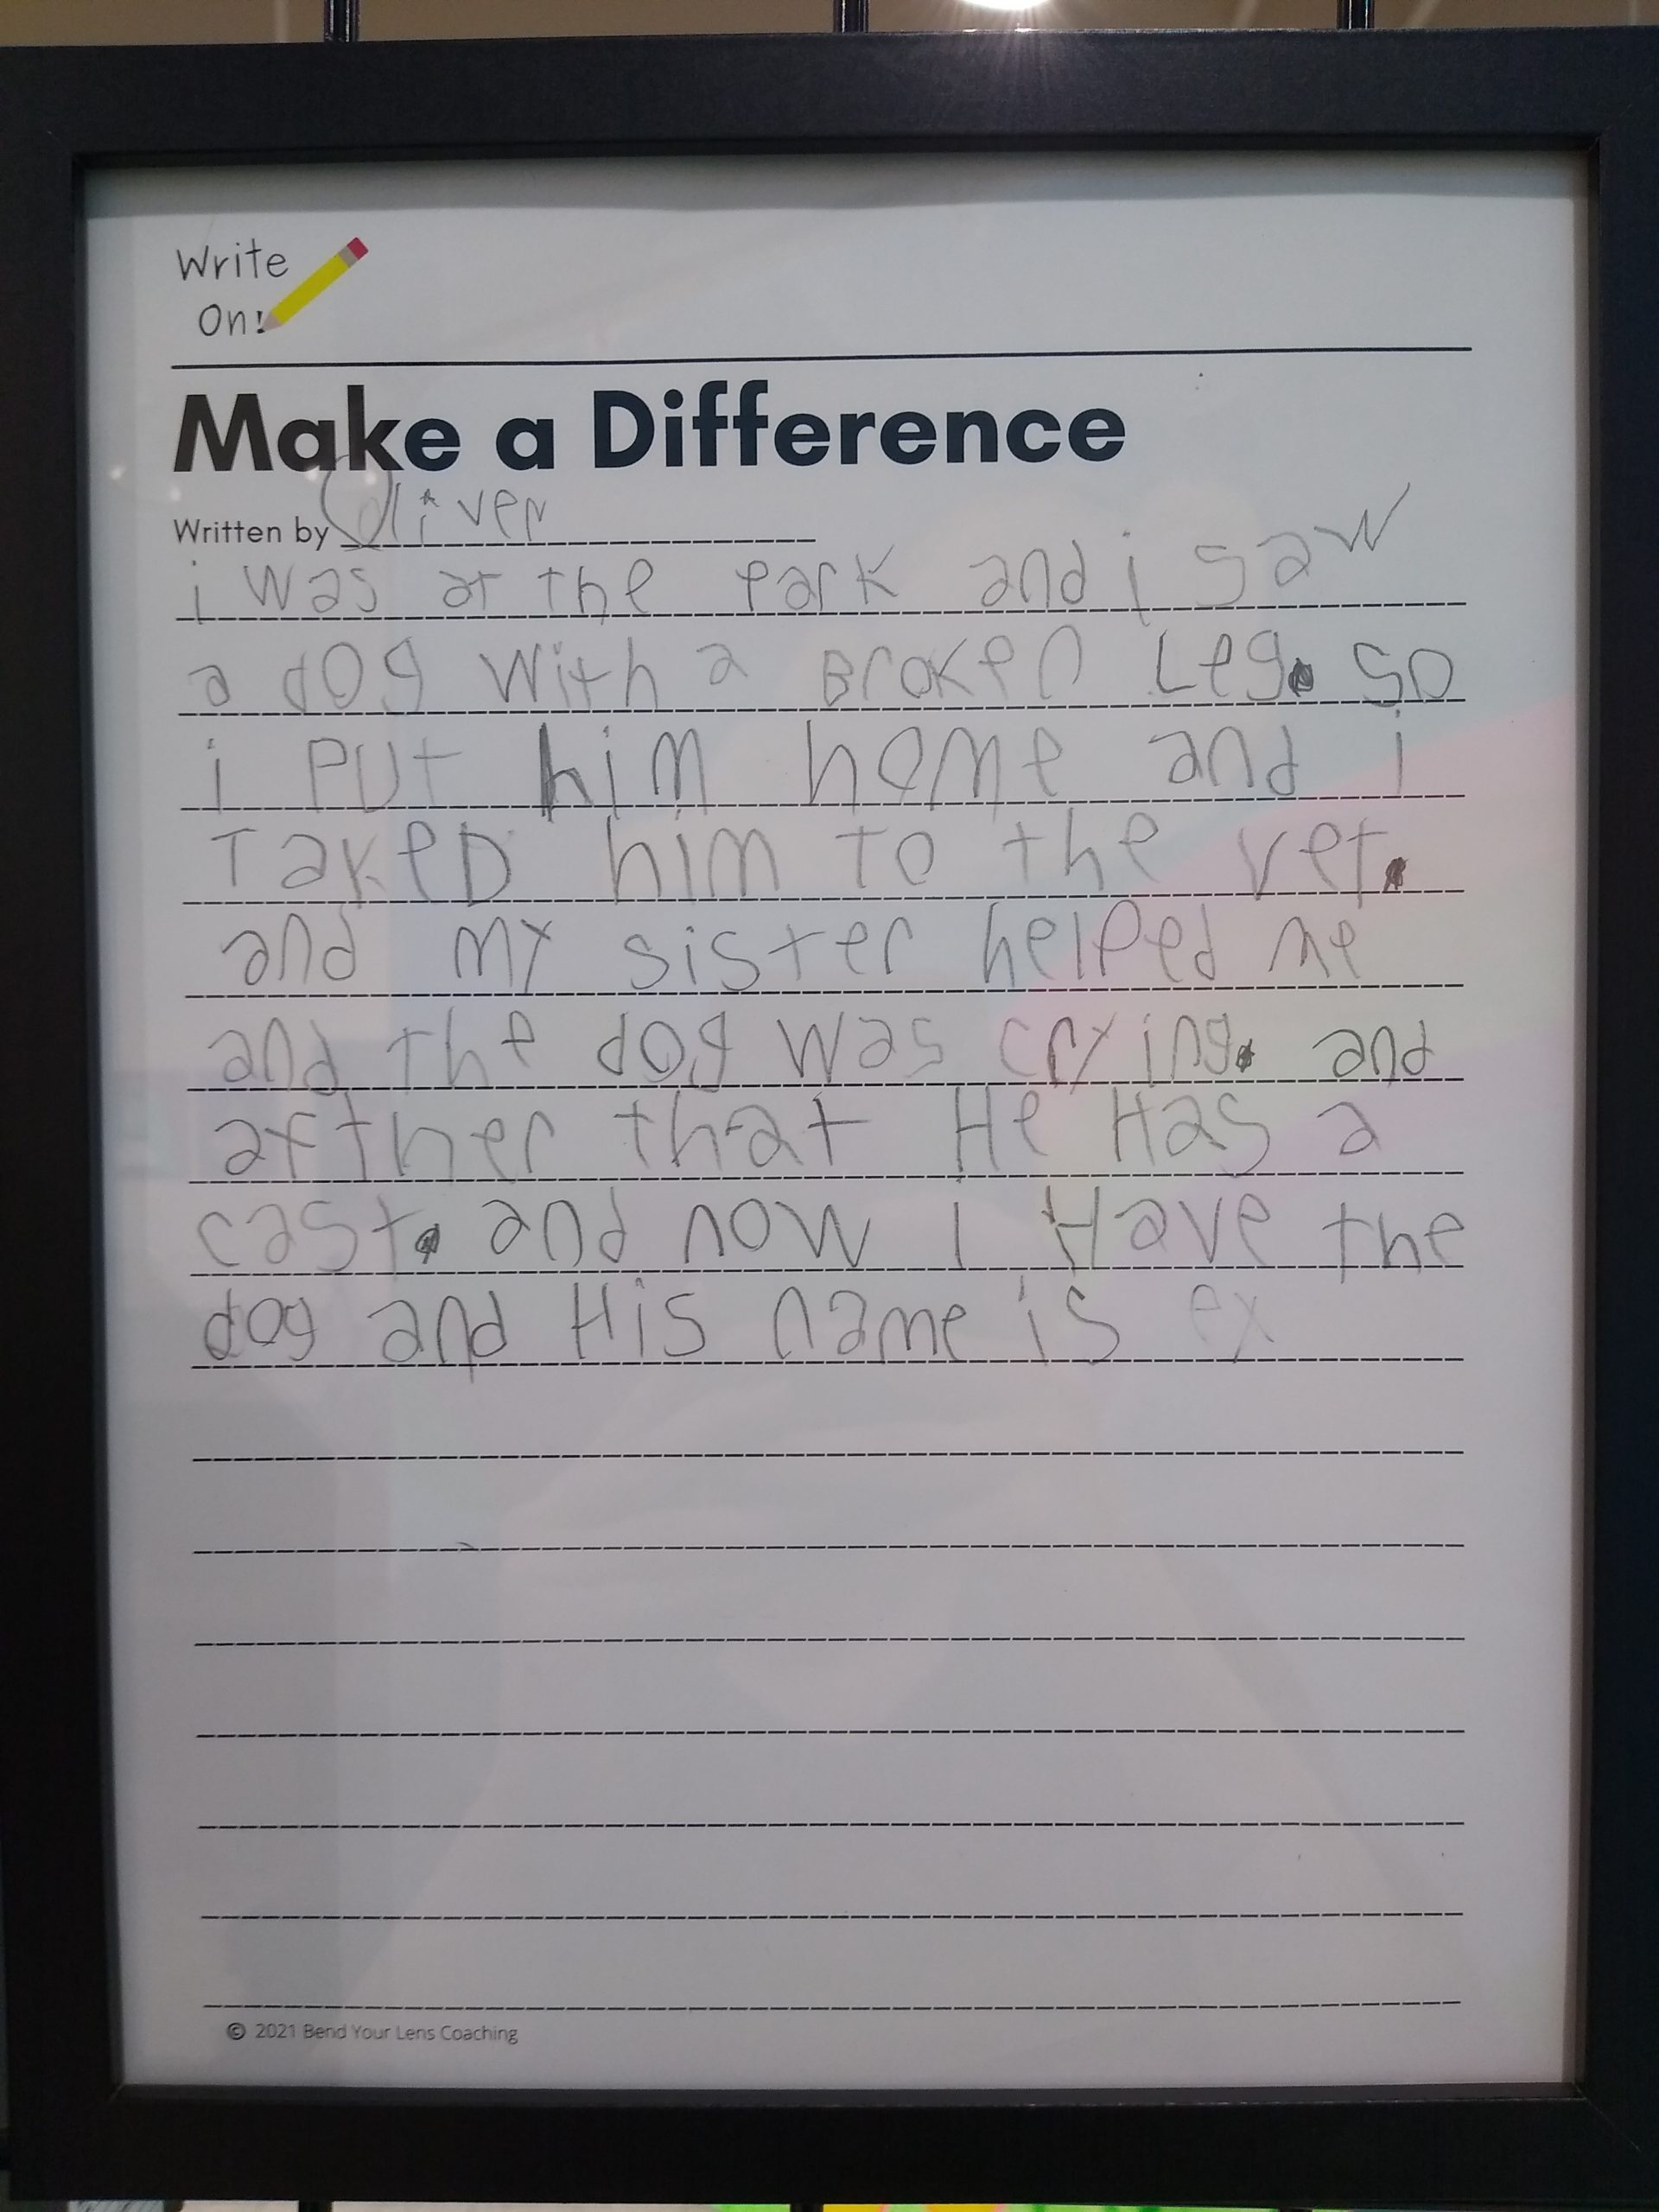 Write
On!
Make a Difference
Written by Oliver
i was at the park and i saw
a dog with a Broken Leg. So
i put him home and i
TakeD him to the vet.
and my sister helped me
and the dog was crying. and
afther that He Has a
cast. and now i Have the
dog and His name is ex
© 2021 Bend Your Lens Coaching